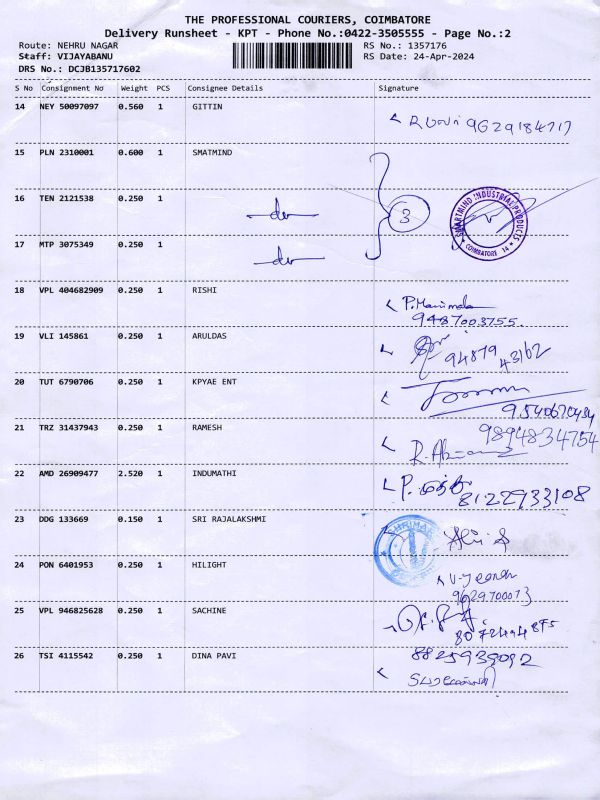 THE PROFESSIONAL COURIERS, COIMBATORE
Delivery Runsheet - KPT - Phone No.:0422-3505555 - Page No.:2
Route: NEHRU NAGAR
Staff: VIJAYABANU
DRS No.: DCJB135717602
RS No.: 1357176
RS Date: 24-Apr-2024
S No Consignment No Weight PCS Consignee Details Signature
14 NEY 50097097 0.560 1 GITTIN
9629184717
15 PLN 2310001 0.600 1 SMATMIND
16 TEN 2121538 0.250 1
3
SMARTMIND INDUSTRIAL PRODUCTS
COIMBATORE 14
17 MTP 3075349 0.250 1
18 VPL 404682909 0.250 1 RISHI
P. Manimala
9487003755
19 VLI 145861 0.250 1 ARULDAS
94879 43162
20 TUT 6790706 0.250 1 KPYAE ENT
21 TRZ 31437943 0.250 1 RAMESH
9894834754
22 AMD 26909477 2.520 1 INDUMATHI
8122933108
23 DDG 133669 0.150 1 SRI RAJALAKSHMI
24 PON 6401953 0.250 1 HILIGHT
25 VPL 946825628 0.250 1 SACHINE
26 TSI 4115542 0.250 1 DINA PAVI
8825939092